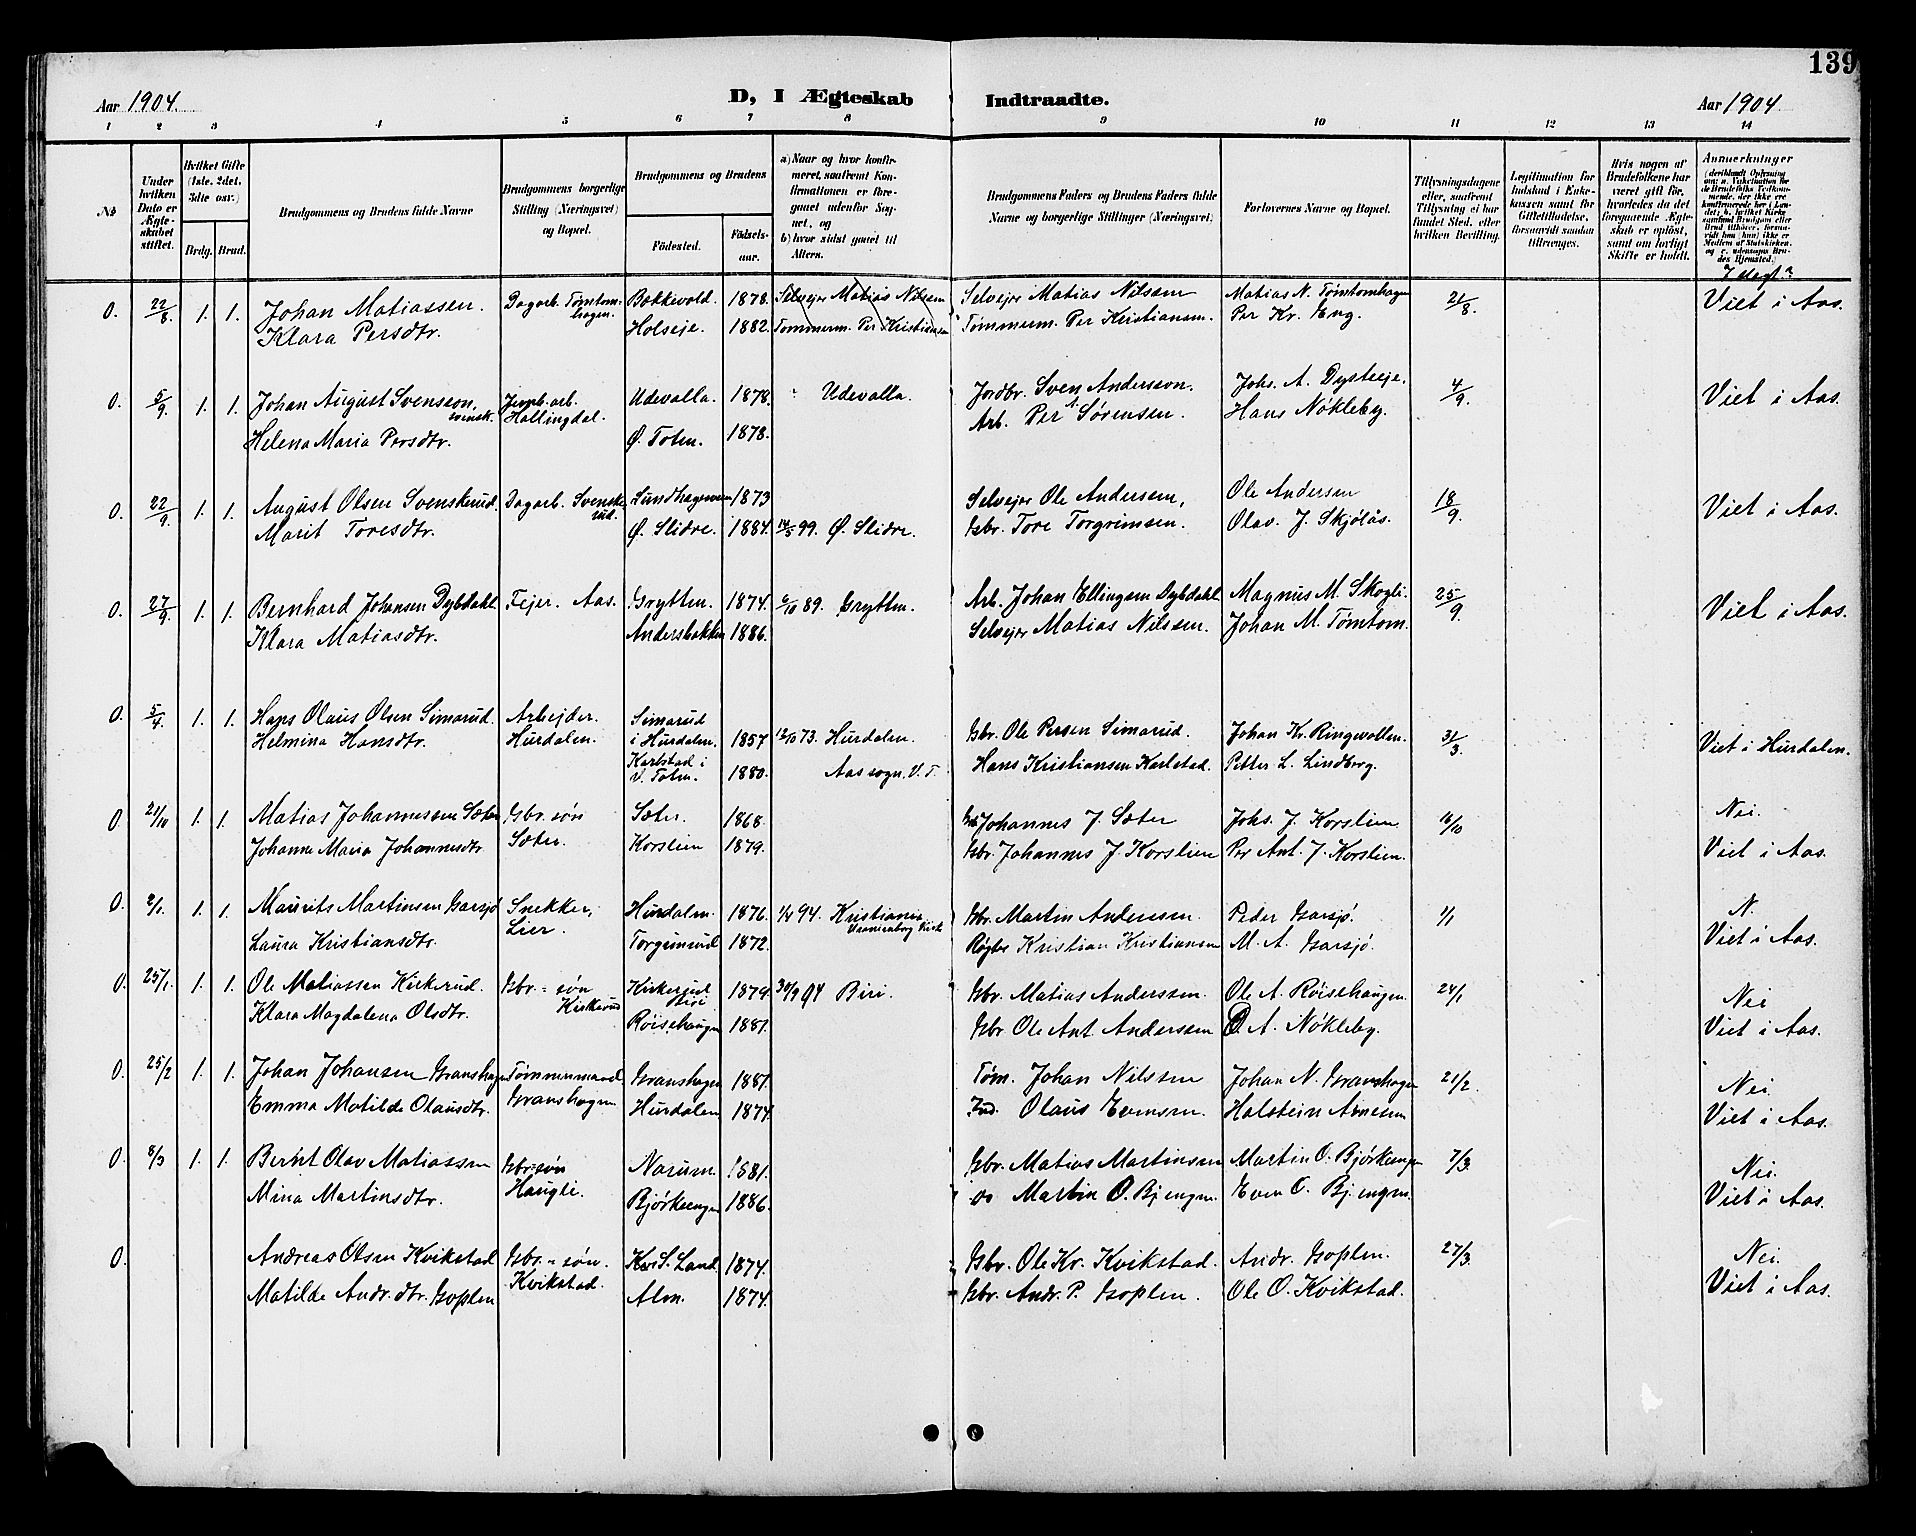 139
Aar 1904.
D, I Ægteskab Indtraadte.
Aar 1904
1 2 3 4 5 6 7 8 9 10 11 12 13 14
No
Under hvilken Dato er Ægteskabet stiftet.
Hvilket Gifte (1ste, 2det, 3die osv.)
Brdg. Brud.
Brudgommens og Brudens fulde Navne
Brudgommens borgerlige Stilling (Næringsvei) og Bopæl.
Brudgommens og Brudens
Fødested.
Fødselsaar.
a) Naar og hvor konfirmeret, saafremt Konfirmationen er foregaaet udenfor Sognet, og
b) hvor sidst gaaet til Alters.
Brudgommens Faders og Brudens Faders fulde Navne og borgerlige Stillinger (Næringsvei)
Forlovernes Navne og Bopæl.
Tillysningsdagene eller, saafremt Tillysning ei har fundet Sted, efter hvilken Bevilling.
Legitimation for Indskud i Enkekassen samt for Giftetilladelse, forsaavidt saadan tiltrænges.
Hvis nogen af Brudefolkene har været gift før, hvorledes da det foregaaende Ægteskab er opløst, samt om lovligt Skifte er holdt.
Anmerkninger
0. 22/8. 1. 1. Johan Matiassen. Dagarb. Tømtomhagen. Bakkevold. 1878. Selvejer Matias Nilsen Selvejer Matias Nilsen Matias N. Tømtomhagen 21/8. Viet i Aas.
Klara Persdtr. Holseje. 1882. Tømmerm. Per Kristiansen Tømmerm. Per Kristiansen. Per Kr. Eng.
0. 5/9. 1. 1. Johan August Svensson, svensk. Jernb.arb. Hallingdal. Udevalla. 1878. Udevalla. Jordbr. Sven Andersson. Johs. A. Dysteeje. 4/9. Viet i Aas.
Helena Maria Persdtr. Ø. Toten. 1878. Arb. Per A. Sørensen. Hans Nøkleby.
0. 22/9. 1. 1. August Olsen Svenskerud. Dagarb. Svenskerud. Lundhagen 1873 Selvejer Ole Andersen, Ole Andersen 18/9. Viet i Aas.
Marit Toresdtr. Ø. Slidre. 1884. 14/5 99. Ø. Slidre. Gbr. Tore Torgrimsen. Olav J. Skjølås.
0. 27/9. 1. 1. Bernhard Johansen Dybdahl. Fejer. Aas. Grytten. 1874. 6/10 89. Grytten. Arb. Johan Ellingsen Dybdahl Magnus M. Skogli. 25/9. Viet i Aas.
Klara Matiasdtr. Andersbakken 1886. Selvejer Matias Nilsen. Johan M. Tømtom.
0. 5/4. 1. 1. Hans Olaus Olsen Simarud. Arbejder. Hurdalen. Simarud i Hurdalen. 1857 12/10 73. Hurdalen. Gbr. Ole Persen Simarud. Johan Kr. Ringvollen. 31/3. Viet i Hurdalen.
Helmina Hansdtr. Karlstad i V. Toten. 1880. Aas sogn. V. T. Hans Kristiansen Karlstad. Petter L. Lindberg.
0. 21/10 1. 1. Matias Johannessen Sæter Gbr. søn Sæter. Sæter. 1868. Gbr. Johannes J. Sæter Johs. J. Korslien 16/10 Nei.
Johanne Maria Johannesdtr. Korslien 1879. Gbr. Johannes J. Korslien Per Ant. J. Korslien. Viet i Aas.
0. 2/1. 1. 1. Maurits Martinsen Garsjø Snekker, Lier. Hurdalen. 1876. 1/4 94. Kristiania Uranienborg Kirke Gbr. Martin Andersen. Peder Garsjø. 1/1 N.
Laura Kristiansdtr. Torgunrud 1872. Kristian Kristiansen M. A. Garsjø. Viet i Aas.
0. 25/1. 1. 1. Ole Matiassen Kirkerud. Gbr. = søn Kirkerud Kirkerud Biri 1879. 30/9 94 Biri. Gbr. Matias Anderssen. Ole A. Røisehaugen. 24/1 Nei
Klara Magdalena Olsdtr. Røisehaugen 1881. Gbr. Ole Ant. Anderssen O. A. Nøkleby. Viet i Aas.
0. 25/2 1. 1. Johan Johansen Granshagen Tømmermand Granshagen. Granshagen 1881. Tøm. Johan Nilssen Johan N. Granshagen 21/2. Nei.
Emma Matilde Olausdtr. Hurdalen 1874 Ind. Olaus Evensen. Halstein Arnesen Viet i Aas.
0. 8/3 1. 1. Bernt Olav Matiassen Gbr. søn Haugli. Narum 1881. Gbr. Matias Martinsen Martin O. Bjørkeengen 7/3. Nei.
Mina Martinsdtr. Bjørkeengen 1886. do Martin O. Bj.engen. Even O. Bj.engen. Viet i Aas.
0. Andreas Olsen Kvikstad Gbr. = søn. Kvikstad. S. Land. 1874. Gbr. Ole Kr. Kvikstad. Andr. Goplen. 27/3. Nei.
Matilde Andr.dtr. Goplen Alm. 1874. Gbr. Andr. P. Goplen. Ole O. Kvikstad. Viet i Aas.